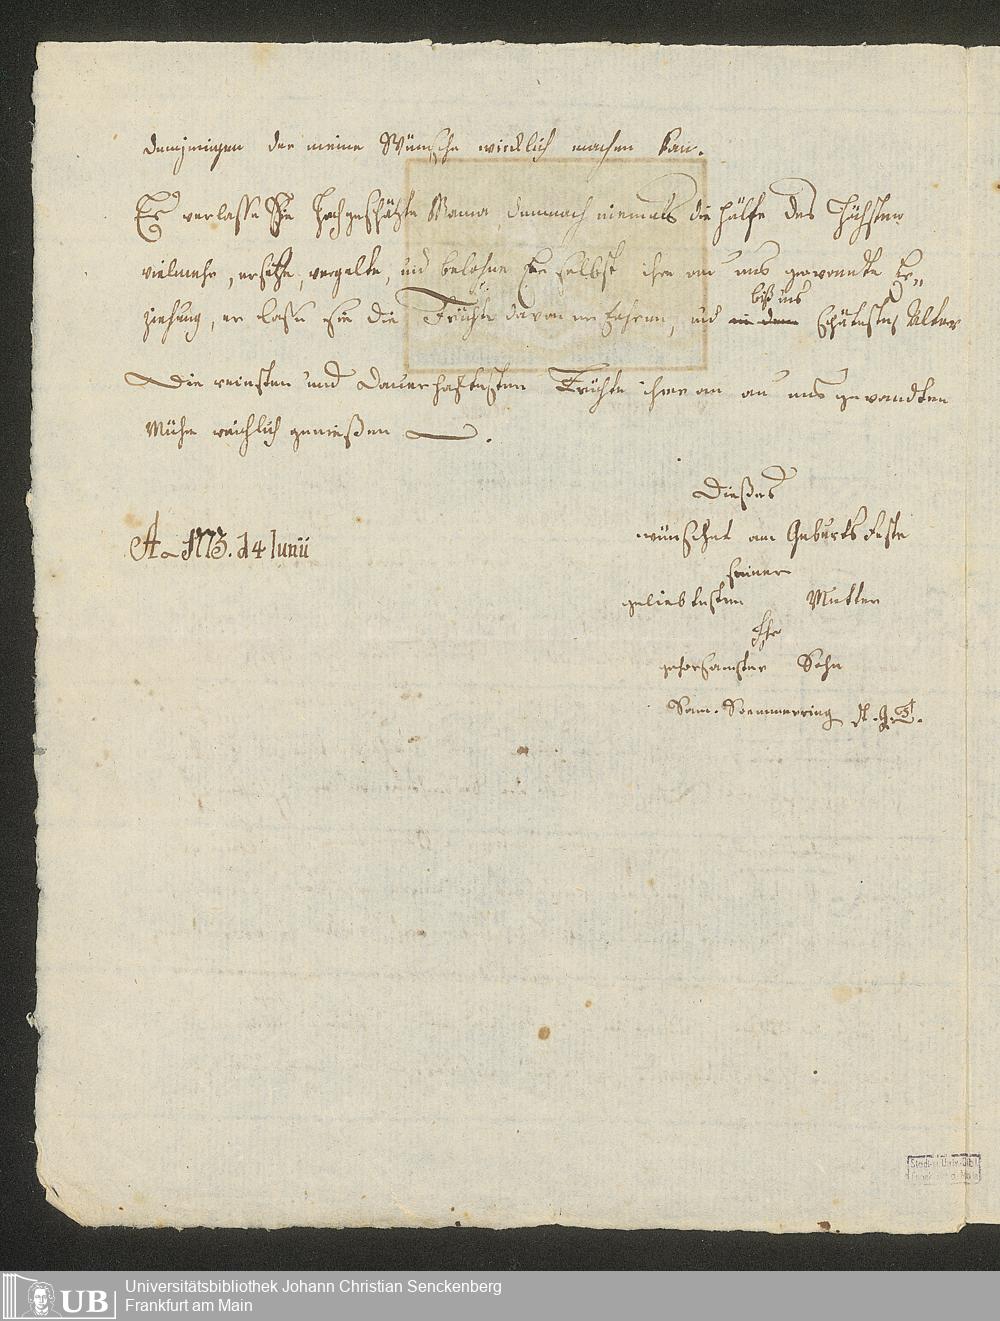 demjenigen der meine Wünsche wircklich machen kan.
Er verlasse Sie Hochgeschäzte Mama demnach niemals die hülfe des Höchsten
vielmehr, ersetze, vergelte, und belohne Er selbst ihre an uns gewandte Er„
ziehung, er lasse sie die Früchte davon und
biß ins
in dem spätestes Alter
Die reinsten und dauerhaftesten Früchte ihrer an uns gewandten
Mühe reichlich genießen
Dießes
wünschet am Geburts Feste
seiner
geliebtesten Mutter
Ihr
gehorsamster Sohn
Sam. Soemmerring
d 4 Iunii
Stadt- u. Univ.-Bibl.
Frankfurt a. Main
UB
Universitätsbibliothek Johann Christian Senckenberg
Frankfurt am Main